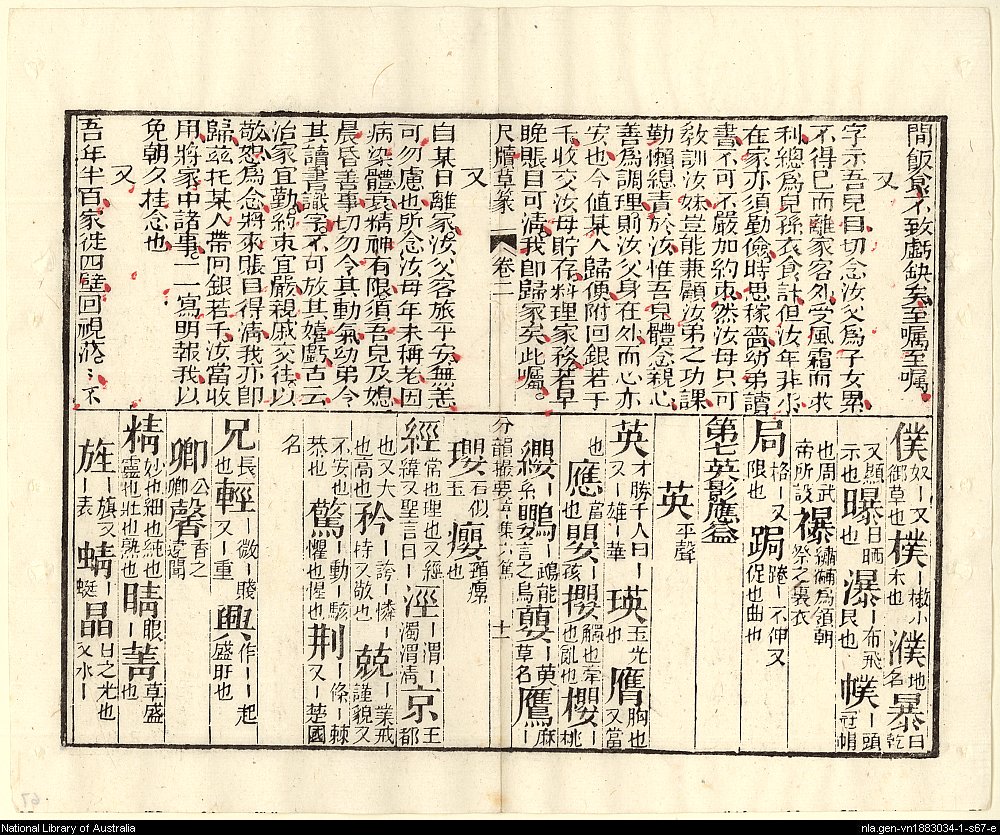 間飯食不致虧缺矣至囑至囑
又
字示吾兒目切念汝父爲子女累
不得已而離家客外受風霜而求
利總爲兒孫衣食計但汝年非小
在家亦須勤儉時思稼穡幼弟讀
書不可不嚴加約束然汝母只可
敎訓汝妹豈能兼顧汝弟之功課
勤懶總責於汝惟吾兒體念親心
善爲調理則汝父身在外而心亦
安也今値某人歸便附回銀若于
千收交汝母貯存料理家務若草
晚賬目可淸我卽歸家矣此囑
尺牘 卷二
又
自某日離家汝父客旅平安無恙
可勿慮也所念汝母年未稱老因
病染體衰精神有限須吾兒及媳
晨昏善事切勿令其動氣幼弟令
其讀書識字不可放其嬉戲古云
治家宜勤約束宜嚴親戚交往以
敬恕爲念將來賬目得淸我亦卽
歸茲托某人帶回銀若干汝當收
用將家中諸事一一寫明報我以
免朝夕挂念也
又
吾年半百家徒四壁回視茫〻不
僕奴｜又御草也 樸｜樕小木也 濮地名 暴日乾
又顯示也 曝日晒也 瀑｜布飛民也 幞｜頭冠帽
也周武帝所設 襮繡黼爲領朝祭之裏衣
局格｜又限也 跼踡｜不伸又促也曲也
第七英影應益
英平聲
英才勝千人曰｜又｜雄｜華 瑛玉光也 膺胸也又當
也 應當也 嬰｜孩 攖觸也縈也亂也 櫻｜桃
纓系｜ 鸚｜鵡能言之鳥 蘡草名｜薁 鷹｜麻
瓔石似玉 癭頸瘰也
分韻撮要 十一
經常也理也又經緯又聖言曰｜ 涇｜渭濁渭淸 京王都
也又大也高也 矜｜誇｜憐持又敬也 兢｜｜業戒謹貌又
不安也恭也 驚｜動｜駭懼也惶也 荆｜條｜棘又｜楚國
名
兄長也 輕｜微｜賤又｜重 興作｜｜起盛旺也
卿公｜卿｜ 馨香之遠聞
精妙也細也純也靈也壯也熟也 睛眼｜ 菁草盛也
旌｜旗又｜表 蜻｜蜓 晶日之光也又水｜
National Library of Australia
nla.gen-vn1883034-1-s67-e